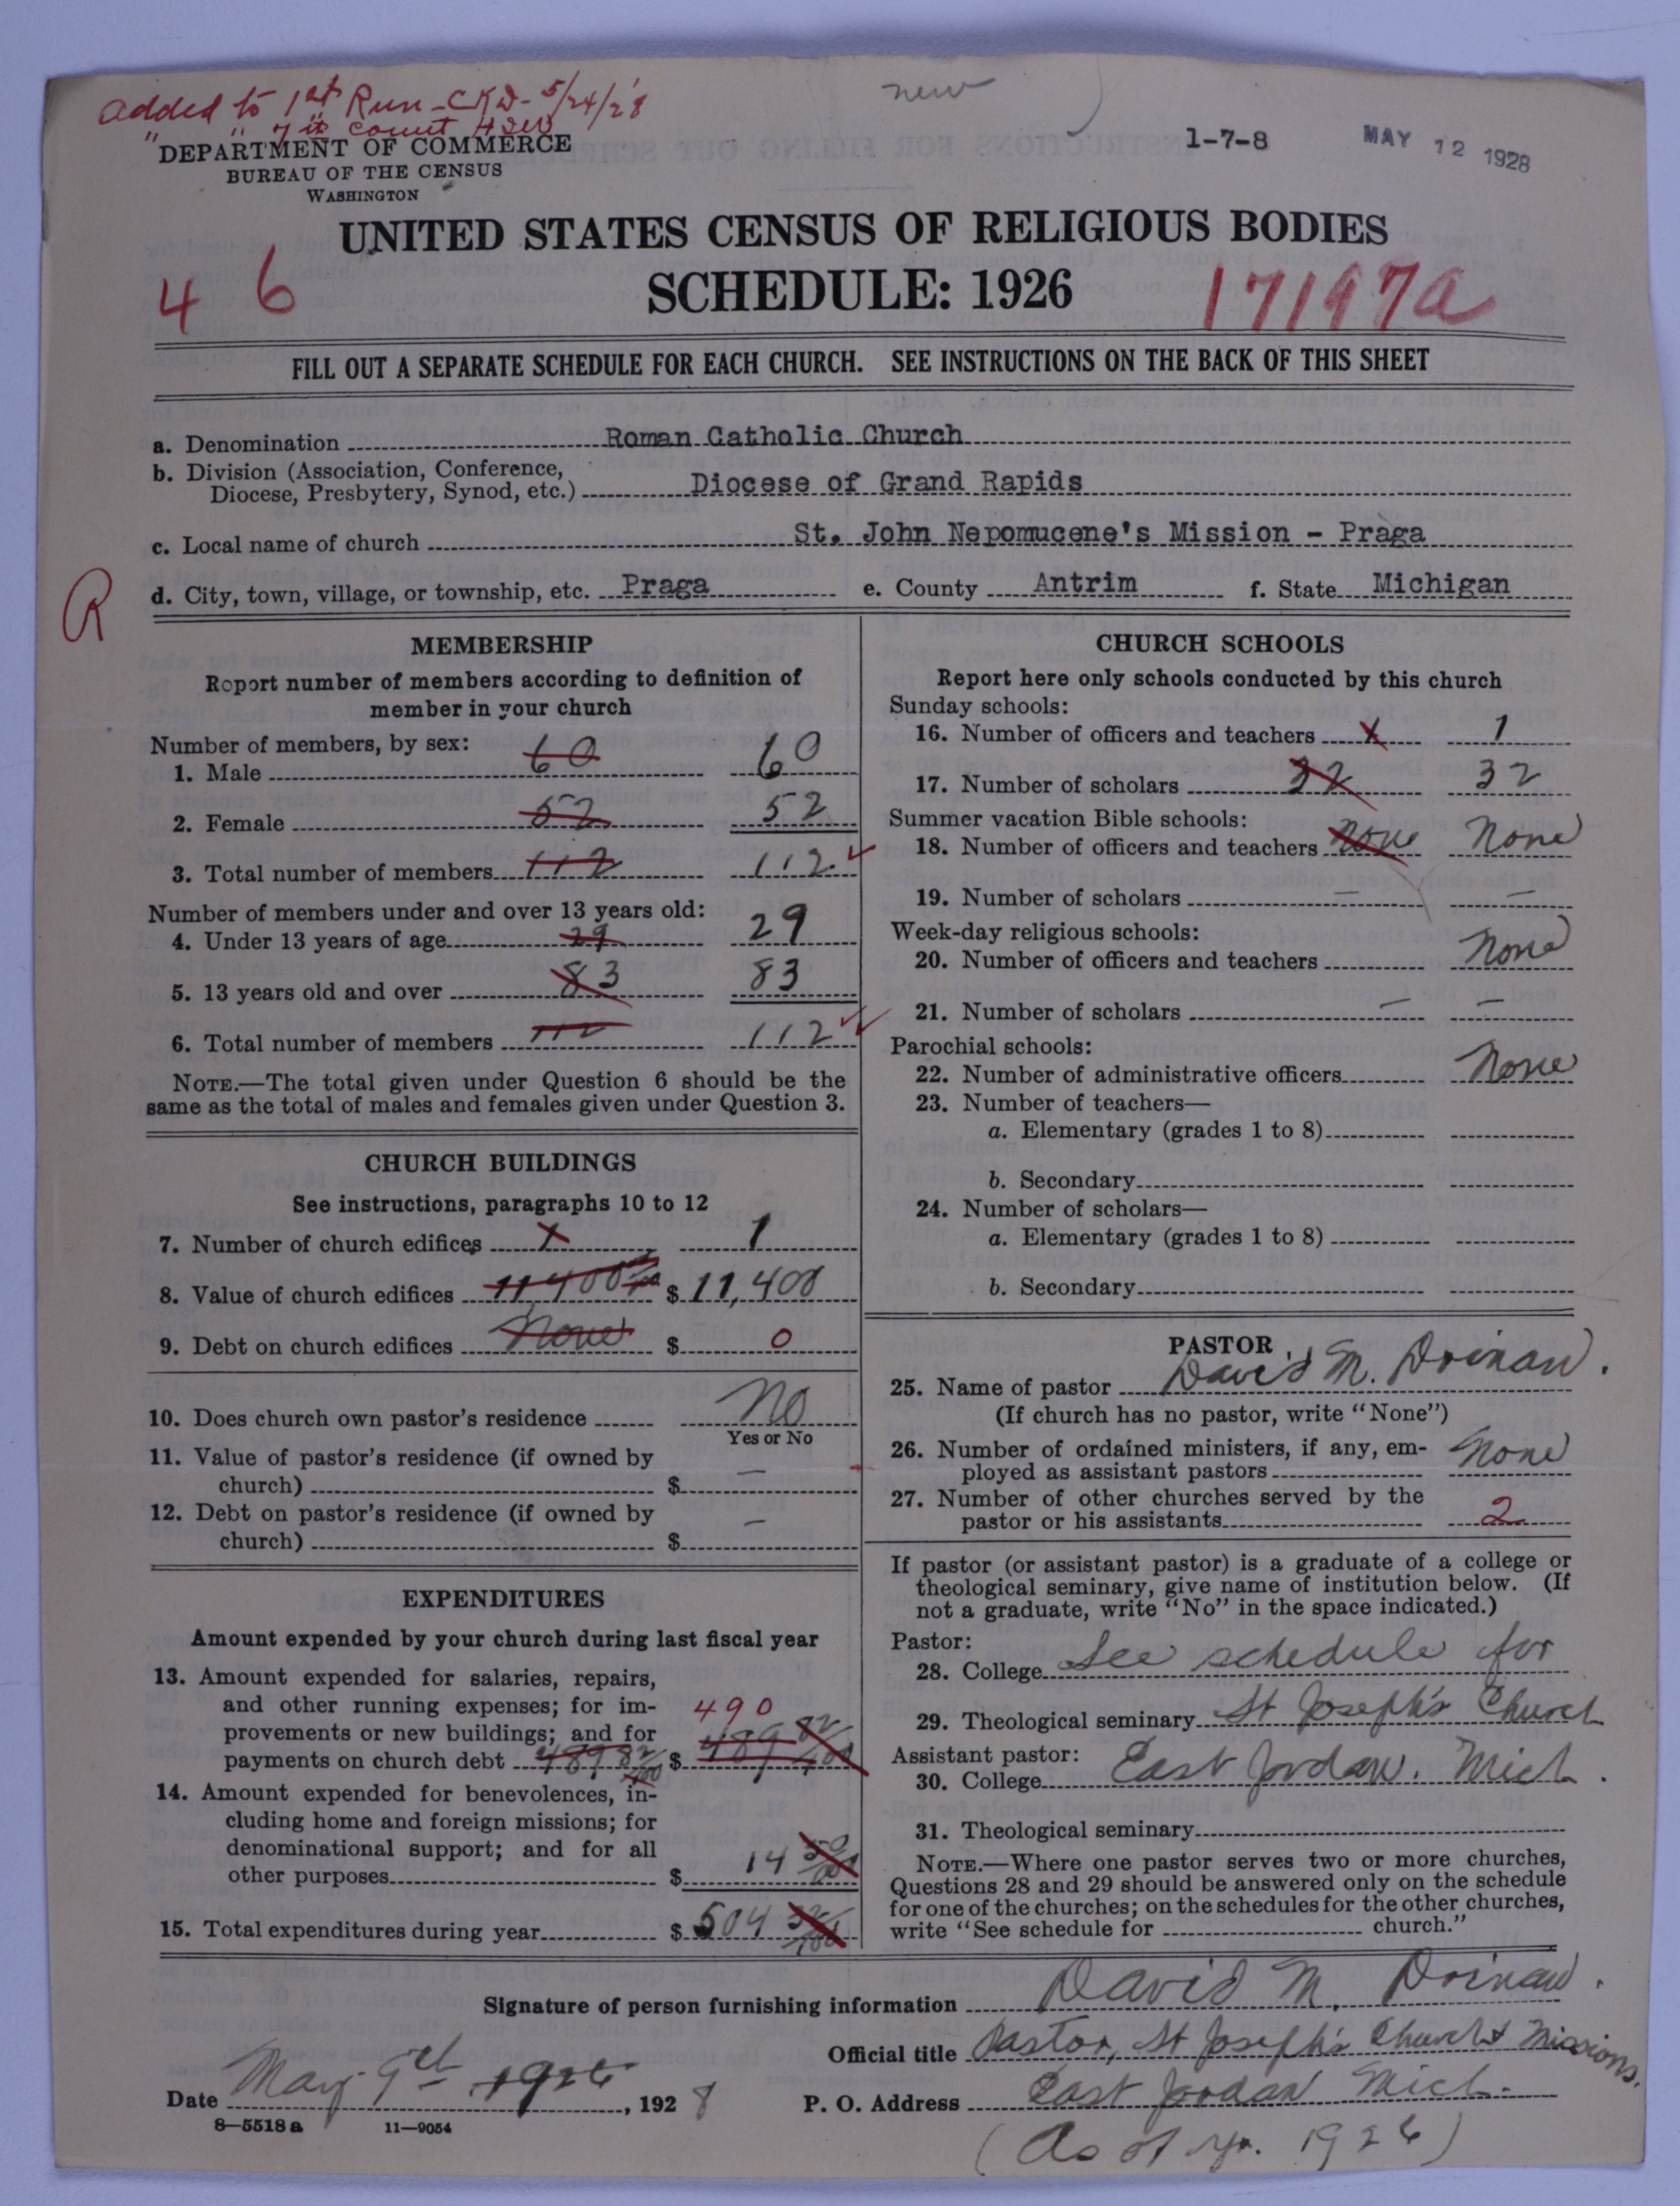 Added to 1st Run - CKW - 5/24/28
" " 7th count HSW
new
DEPARTMENT OF COMMERCE
BUREAU OF THE CENSUS
WASHINGTON
1-7-8
MAY 12 1928
UNITED STATES CENSUS OF RELIGIOUS BODIES
SCHEDULE: 1926
46
17197a
FILL OUT A SEPARATE SCHEDULE FOR EACH CHURCH. SEE INSTRUCTIONS ON THE BACK OF THIS SHEET
a. Denomination Roman Catholic Church
b. Division (Association, Conference,
Diocese, Presbytery, Synod, etc.) Diocese of Grand Rapids
c. Local name of church St. John Nepomucene's Mission - Praga
R
d. City, town, village, or township, etc. Praga e. County Antrim f. State Michigan
MEMBERSHIP
Report number of members according to definition of
member in your church
Number of members, by sex:
1. Male 60 60
2. Female 52 52
3. Total number of members 112 112
Number of members under and over 13 years old:
4. Under 13 years of age 29 29
5. 13 years old and over 83 83
6. Total number of members 112 112
NOTE.—The total given under Question 6 should be the
same as the total of males and females given under Question 3.
CHURCH BUILDINGS
See instructions, paragraphs 10 to 12
7. Number of church edifices 1 1
8. Value of church edifices 11,400 $ 11,400
9. Debt on church edifices None $ 0
10. Does church own pastor's residence No
Yes or No
11. Value of pastor's residence (if owned by
church) $ —
12. Debt on pastor's residence (if owned by
church) $ —
EXPENDITURES
Amount expended by your church during last fiscal year
13. Amount expended for salaries, repairs,
and other running expenses; for im-
provements or new buildings; and for
490
payments on church debt 489 82/100 $ 489 82/100
14. Amount expended for benevolences, in-
cluding home and foreign missions; for
denominational support; and for all
other purposes $ 14 50/100
15. Total expenditures during year $ 504 32/100
CHURCH SCHOOLS
Report here only schools conducted by this church
Sunday schools:
16. Number of officers and teachers 1 1
17. Number of scholars 32 32
Summer vacation Bible schools:
18. Number of officers and teachers None None
19. Number of scholars — —
Week-day religious schools:
20. Number of officers and teachers None
21. Number of scholars — —
Parochial schools:
22. Number of administrative officers None
23. Number of teachers—
a. Elementary (grades 1 to 8)
b. Secondary
24. Number of scholars—
a. Elementary (grades 1 to 8)
b. Secondary
PASTOR
25. Name of pastor David M. Drinan.
(If church has no pastor, write "None")
26. Number of ordained ministers, if any, em-
ployed as assistant pastors None
27. Number of other churches served by the
pastor or his assistants 2
If pastor (or assistant pastor) is a graduate of a college or
theological seminary, give name of institution below. (If
not a graduate, write "No" in the space indicated.)
Pastor:
28. College See schedule for
29. Theological seminary St Joseph's Church
Assistant pastor:
30. College East Jordan. Mich.
31. Theological seminary
NOTE.—Where one pastor serves two or more churches,
Questions 28 and 29 should be answered only on the schedule
for one of the churches; on the schedules for the other churches,
write "See schedule for church."
Signature of person furnishing information David M. Drinan.
Official title Pastor, St Joseph's Church & Missions.
Date May 9th 1926, 1928
P. O. Address East Jordan Mich.
8—5518 a 11—9054
(As of yr. 1926)